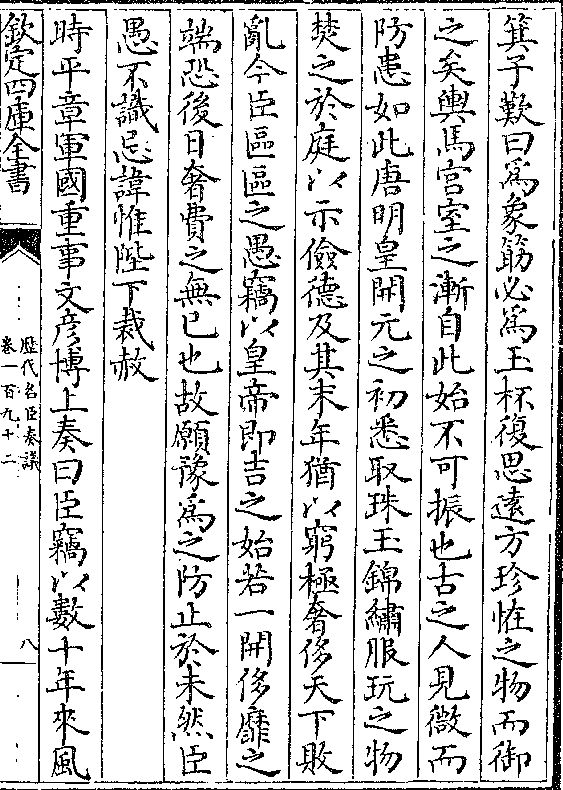 箕子歎曰爲象筯必爲玉杯復思遠方珍恠之物而御
之矣輿馬宫室之漸自此始不可振也古之人見微而
防患如此唐明皇開元之初悉取珠玉錦繡服玩之物
焚之於庭以示儉德及其末年猶以窮極奢侈天下敗
亂今臣區區之愚竊以皇帝即吉之始若一開侈靡之
端恐後日奢費之無已也故願豫爲之防止於未然臣
愚不識忌諱惟陛下裁赦
時平章軍國重事文彦博上奏曰臣竊以數十年來風
欽定四庫全書
歴代名臣奏議
卷一百九十二
八